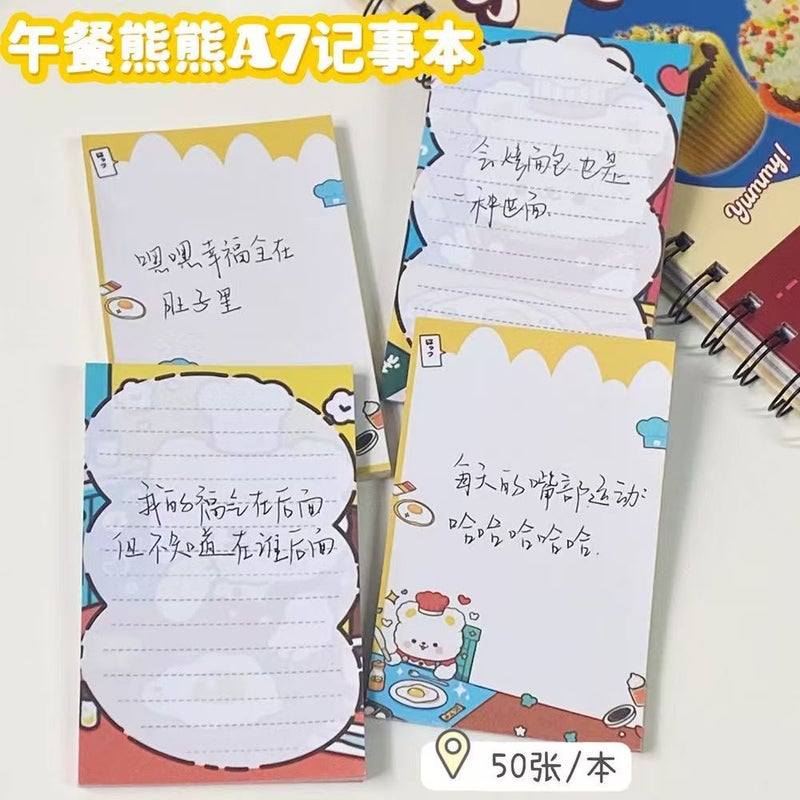 午餐熊熊A7记事本
会烤面包也是
一种世面
嘿嘿幸福全在
肚子里
每天的嘴部运动
哈哈哈哈哈.
我的福气在后面
但不知道在谁后面
Yummy!
50张/本